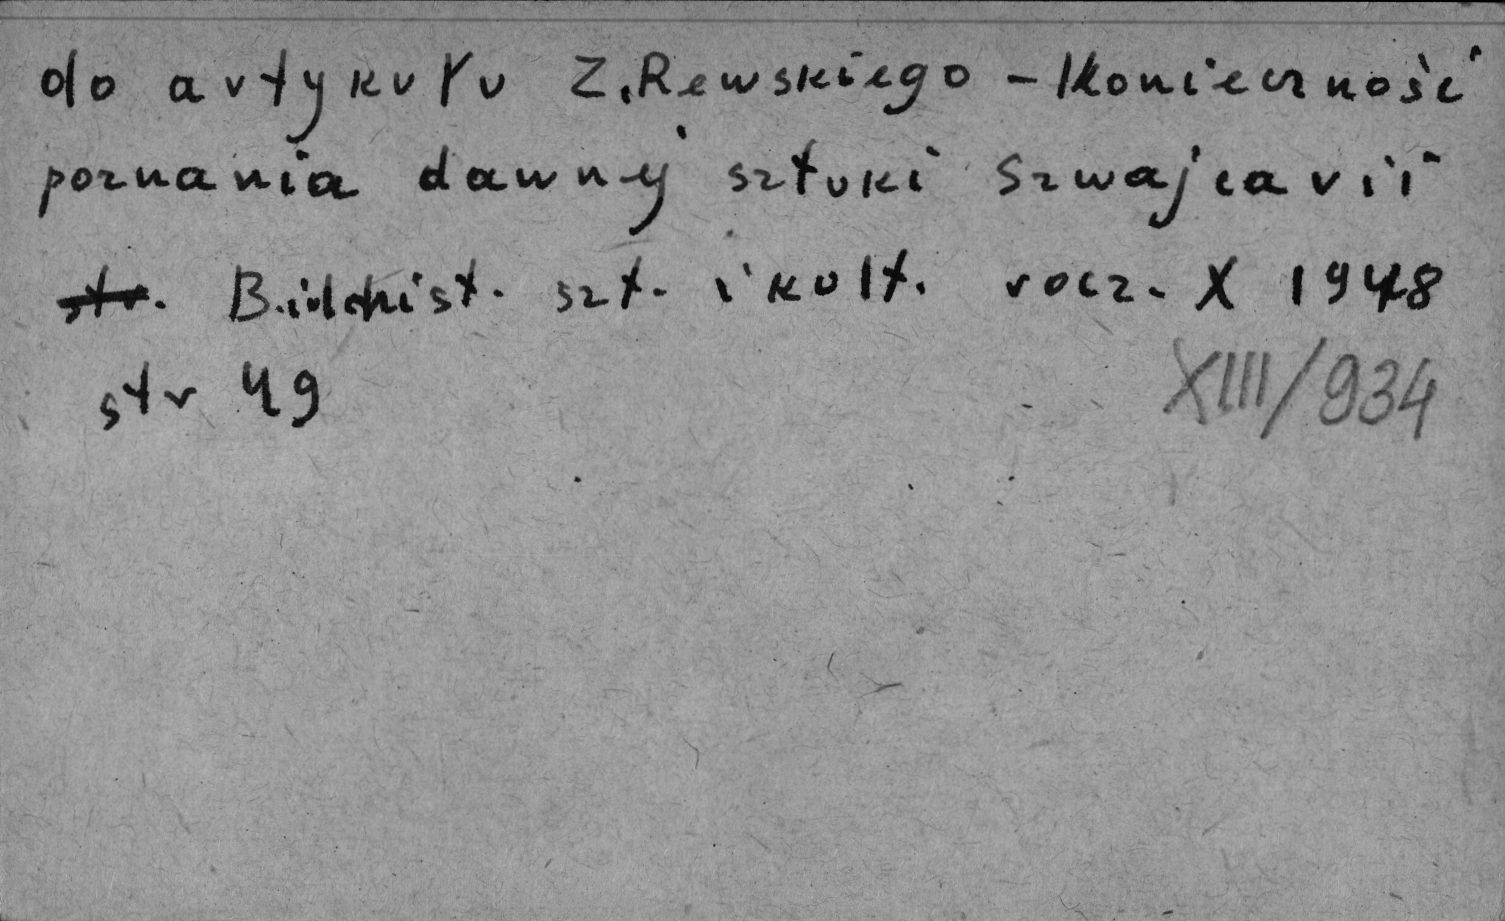 do artykułu Z. Rewskiego – Konieczność
poznania dawnej sztuki Szwajcarii
str. Biul. hist. szt. i kult. rocz. X 1948
str 49
XIII/934